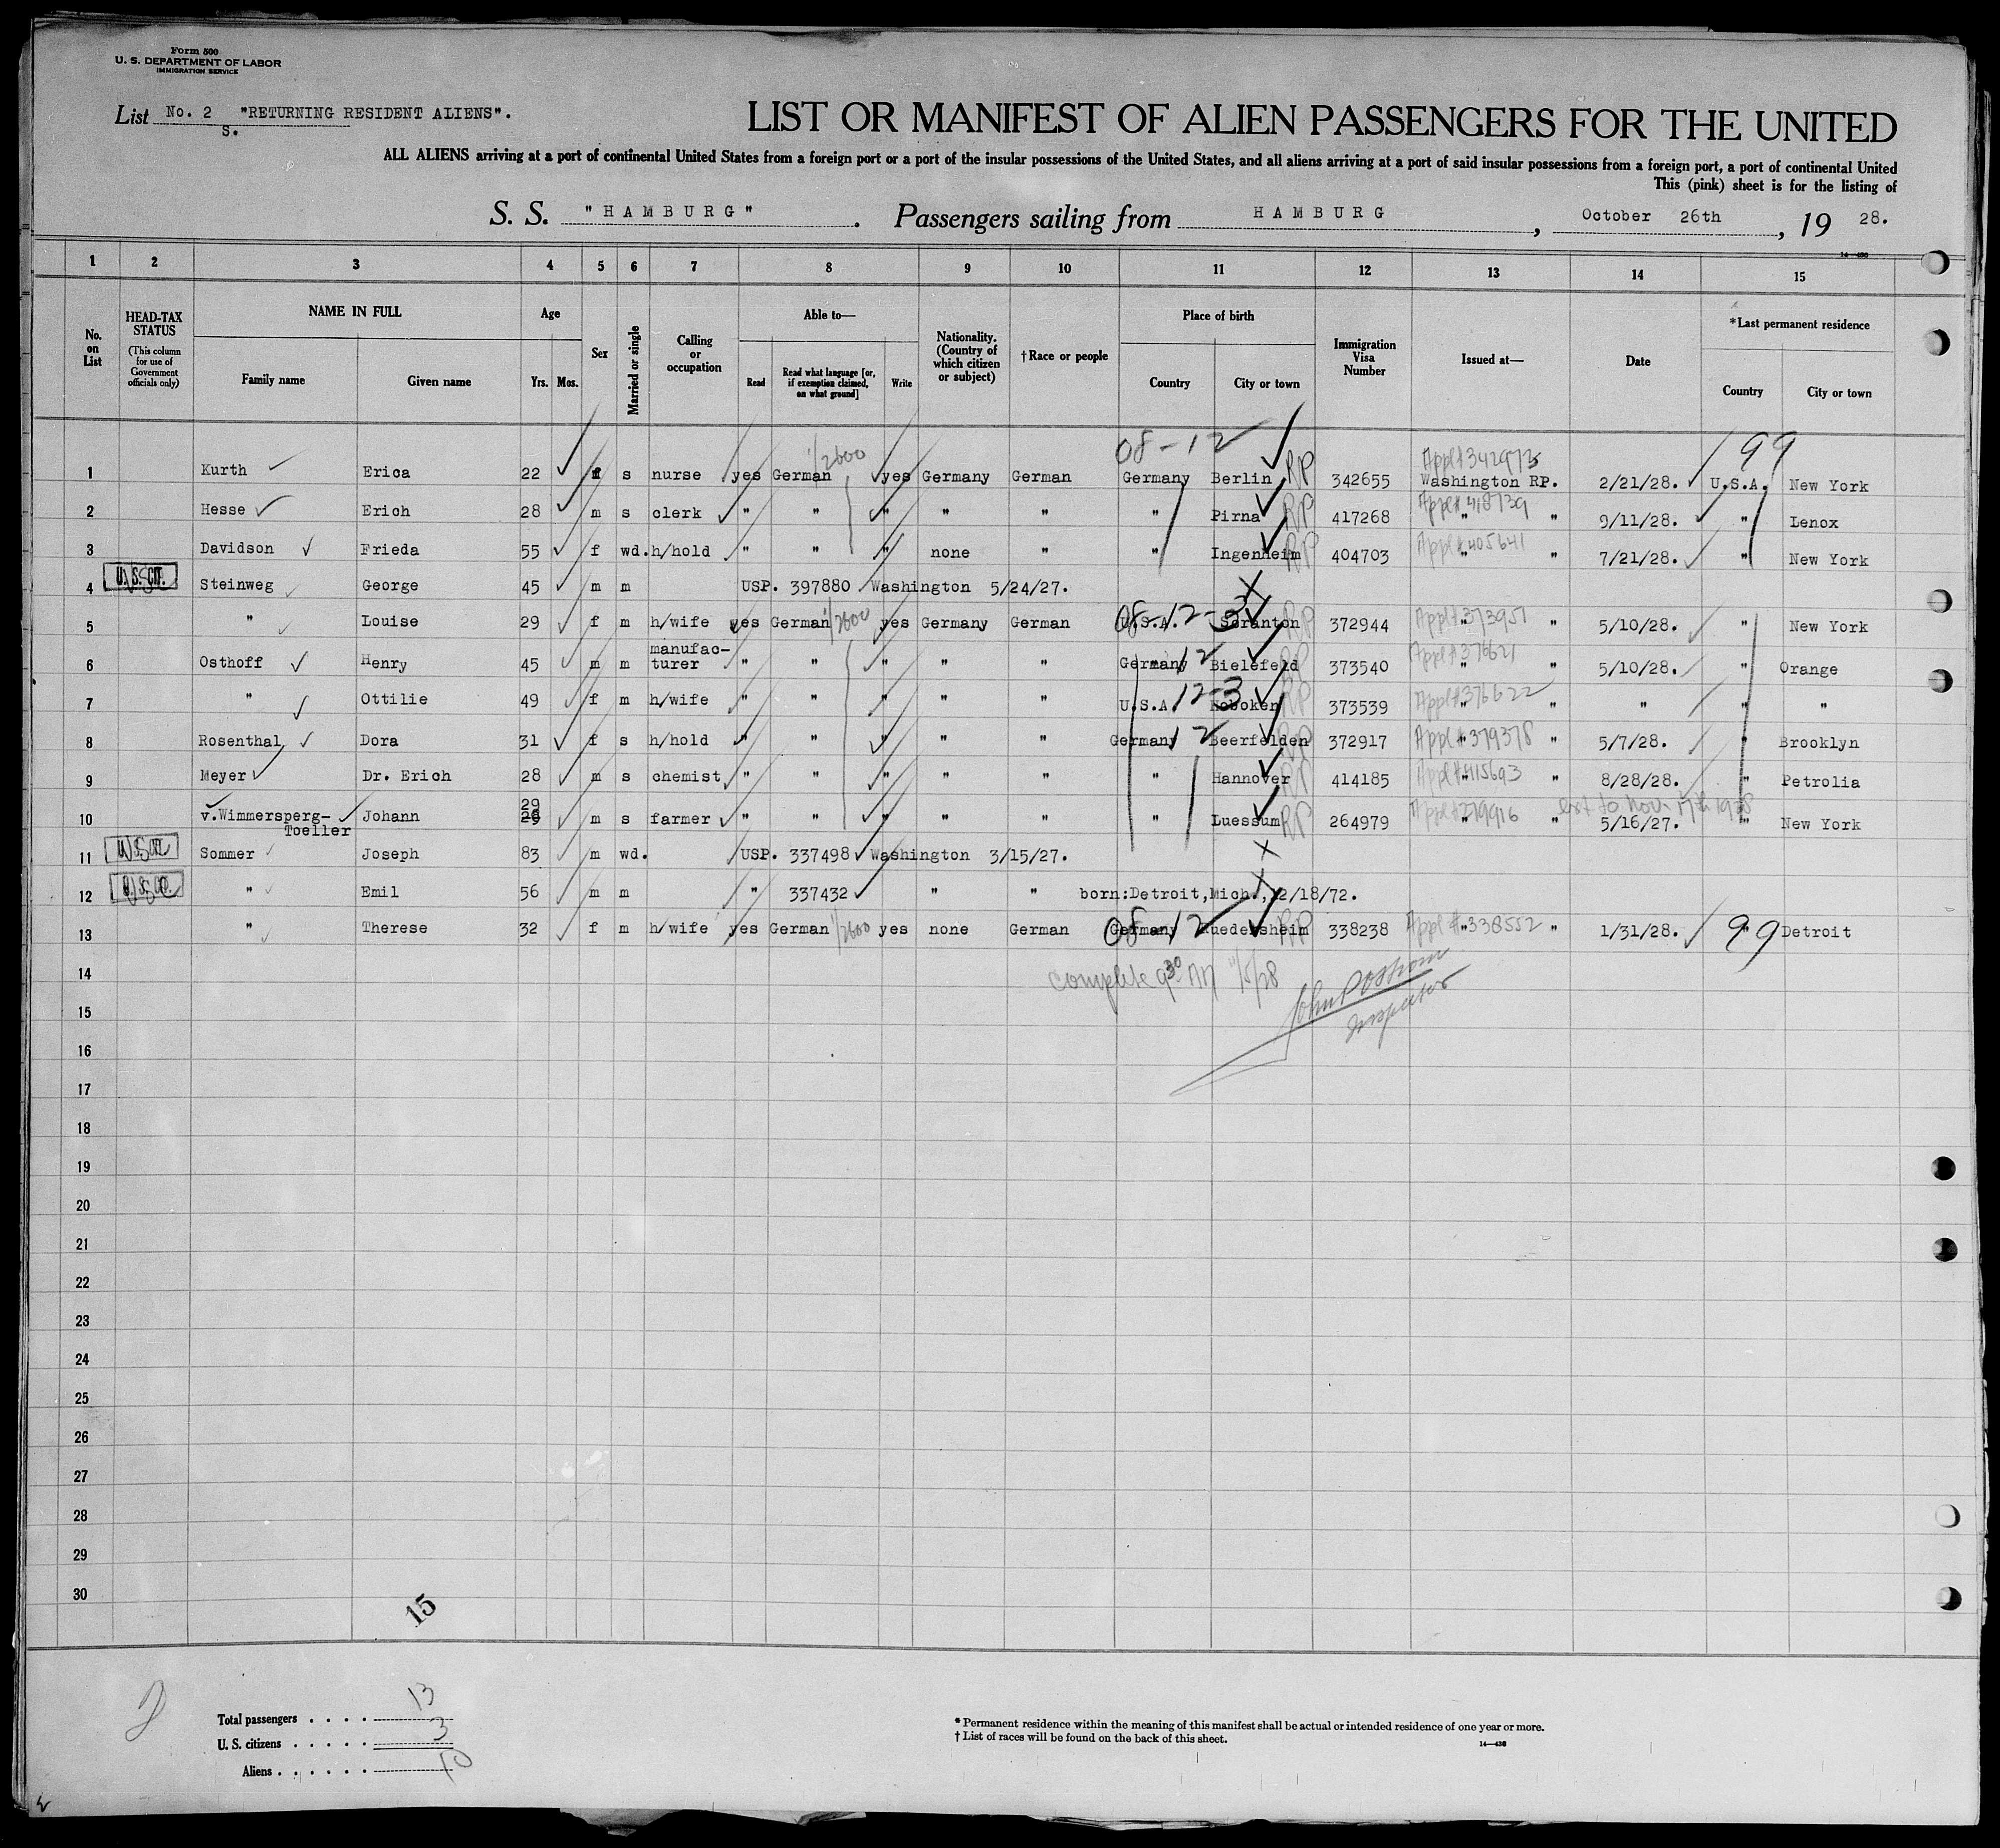 Form 500
U. S. DEPARTMENT OF LABOR
IMMIGRATION SERVICE
List No. 2 "RETURNING RESIDENT ALIENS".
S.
LIST OR MANIFEST OF ALIEN PASSENGERS FOR THE UNITED
ALL ALIENS arriving at a port of continental United States from a foreign port or a port of the insular possessions of the United States, and all aliens arriving at a port of said insular possessions from a foreign port, a port of continental United
This (pink) sheet is for the listing of
S. S. "HAMBURG". Passengers sailing from HAMBURG, October 26th, 19 28.
14—430
1 2 3 4 5 6 7 8 9 10 11 12 13 14 15
No. on List
HEAD-TAX STATUS
(This column for use of Government officials only)
NAME IN FULL
Family name Given name
Age
Yrs. Mos.
Sex
Married or single
Calling or occupation
Able to—
Read
Read what language [or, if exemption claimed, on what ground]
Write
Nationality. (Country of which citizen or subject)
†Race or people
Place of birth
Country City or town
Immigration Visa Number
Issued at—
Date
*Last permanent residence
Country City or town
08-12 99
Appl#342973
1 Kurth Erica 22 f s nurse yes German 1/2600 yes Germany German Germany Berlin RP 342655 Washington RP. 2/21/28. U.S.A. New York
2 Hesse Erich 28 m s clerk " " " " " " Pirna RP 417268 Appl#418739 " " 9/11/28. " Lenox
3 Davidson Frieda 55 f wd. h/hold " " " none " " Ingenheim RP 404703 Appl#405641 " " 7/21/28. " New York
4 U.S. CIT. Steinweg George 45 m m USP. 397880 Washington 5/24/27. X
5 " Louise 29 f m h/wife yes German 1/2600 yes Germany German 08-12-3 U.S.A. Scranton RP 372944 Appl#373951 " " 5/10/28. " New York
6 Osthoff Henry 45 m m manufac-
turer " " " " " Germany 12 Bielefeld RP 373540 Appl#376621 " " 5/10/28. " Orange
7 " Ottilie 49 f m h/wife " " " " " U.S.A. 12-3 Hoboken RP 373539 Appl#376622 " " " " "
8 Rosenthal Dora 31 f s h/hold " " " " " Germany 12 Beerfelden RP 372917 Appl#379378 " " 5/7/28. " Brooklyn
9 Meyer Dr. Erich 28 m s chemist " " " " " " Hannover RP 414185 Appl#415693 " " 8/28/28. " Petrolia
29 ext to Nov. 17th 1928
10 v.Wimmersperg- Johann m s farmer " " " " " " Luessum RP 264979 Appl#279916 " " 5/16/27. " New York
Toeller
11 Sommer Joseph 83 m wd. USP. 337498 Washington 3/15/27. X
12 " Emil 56 m m " 337432 " " born:Detroit,Mich.,12/18/72. X
13 " Therese 32 f m h/wife yes German 1/2600 yes none German 08 Germany 12 Ruedersheim RP 338238 Appl#338552 " " 1/31/28. 99 " Detroit
14 Complete 9:30 AM 11/5/28
15 Inspector
16
17
18
19
20
21
22
23
24
25
26
27
28
29
30
15
Total passengers . . . . 13
U. S. citizens . . . . . 3
Aliens . . . . . . 10
* Permanent residence within the meaning of this manifest shall be actual or intended residence of one year or more.
† List of races will be found on the back of this sheet.
14—430